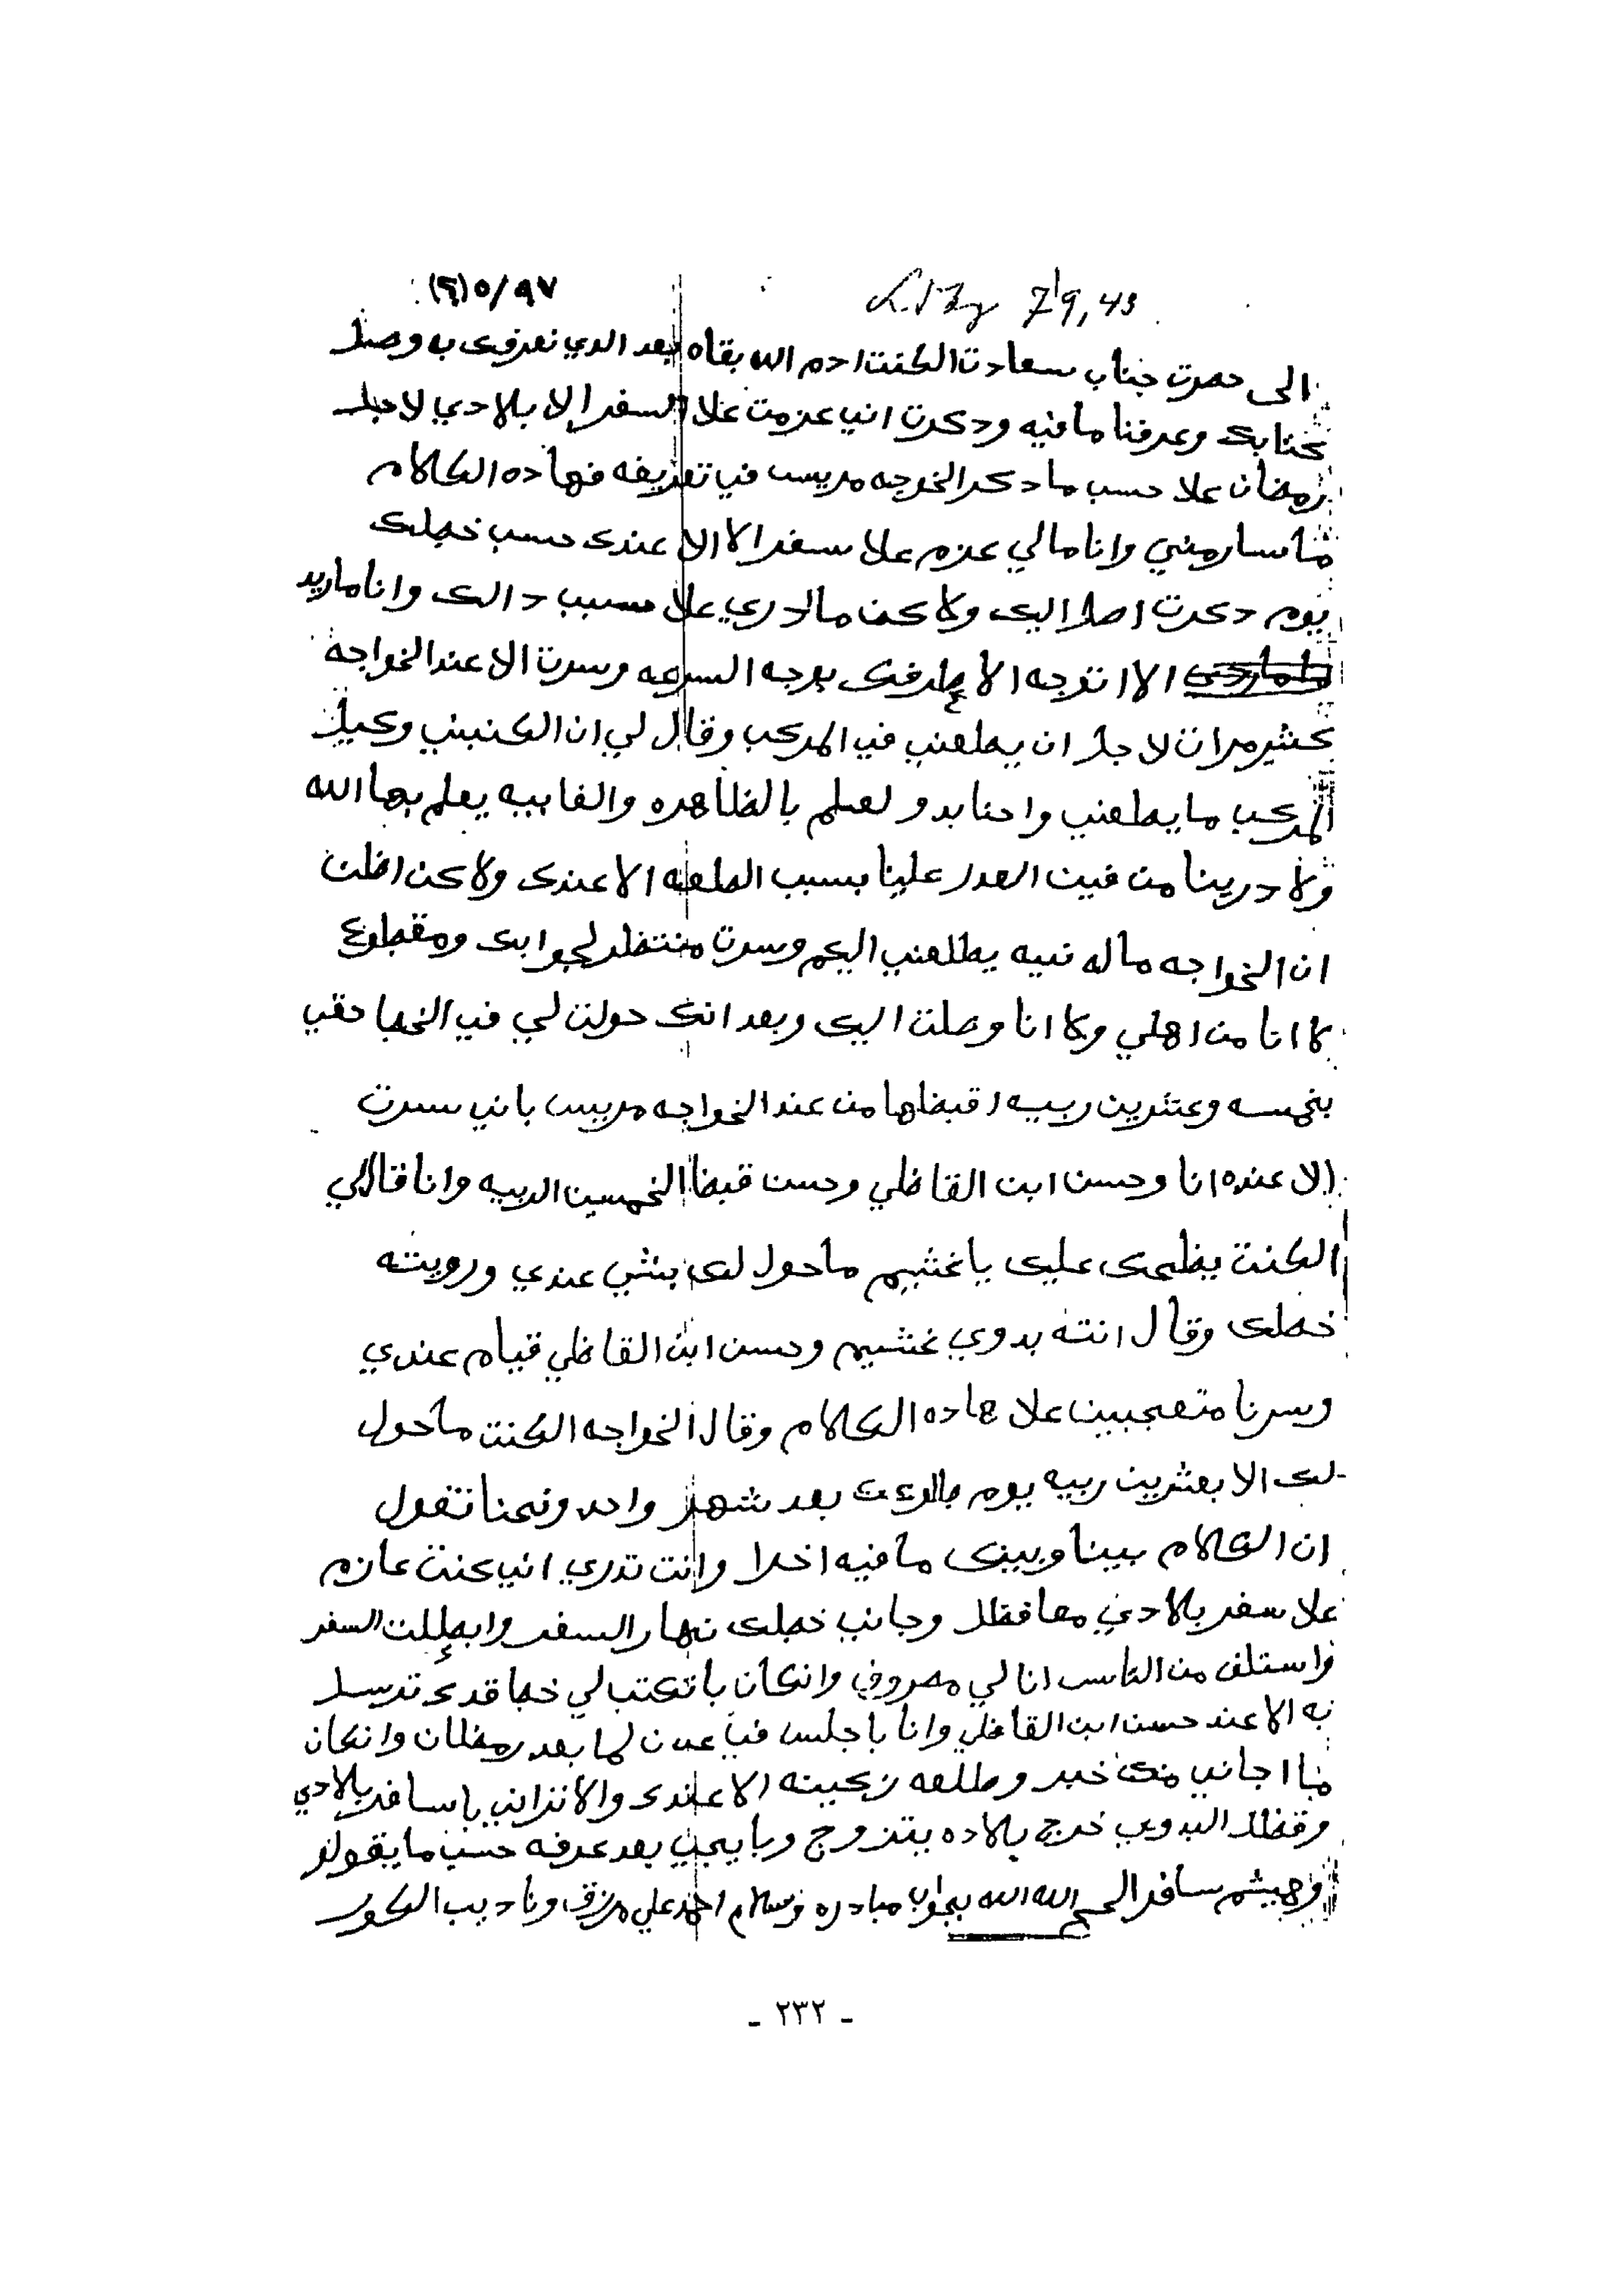 79,43 (٦)٥/٩٧
الى حصرت جناب سعادت الكنت ادم الله بقاه بعد الدي نعرفك به وصل
كتابك وعرفنا ما فيه ودكرت اني عزمت علا السفر الا بلادي لاجل
رمضان علا حسب ما دكر الخوجه مريس في تعريفه فهاده الكلام
ما سار مني وانا مالي عزم علا سفر الا الا عندك حسب خطك
يوم دكرت اصل اليك ولا كن ما ادري علا سبب دالك وانا ماريد
الا اتوجه الا طرفك بوجه السرعه وسرت الا عند الخواجه
كثير مرات لا جل ان يطلعني في المركب وقال لي ان الكنبني وكيل
المركب ما يطلعني واحنا بدو لعلم بالظاهره والغابيه يعلم بها الله
ولا درينا من فين العدر علينا بسبب الطلعه الا عندك ولا كن اظن
ان الخواجه ماله نيه يطلعني اليكم وسرت منتظر لجوابك ومقطوع
لا انا من اهلي ولا انا وصلت اليك وبعد انك حولت لي في الخط حقي
بخمسه وعشرين ربيه اقبضها من عند الخواجه مريس باني سرت
الا عنده انا وحسن ابن القاظي وحسن قبضا الخمسين الربيه وانا قال لي
الكنت يظحك عليك يا غشيم ما حول لك بشي عندي ورويته
خطك وقال انته بدوي غشيم وحسن ابن القاظي قيام عندي
وسرنا متعجبين علا هاده الكلام وقال الخواجه الكنت ما حول
لك الا بعشرين ربيه يوم بعد شهر واحد ونحنا نقول
ان الكلام بينا وبينك ما فيه اخلا وانت تدري اني كنت عازم
علا سفر بلادي معا فظل وجاني خطك نهار السفر وابطلت السفر
واستلف من الناس انا لي مصروفي وانكان با تكتب لي خط قدك ترسل
به الا عند حسن ابن القاظي وانا با جلس في عدن لما بعد رمظان وانكان
ما اجاني منك خبر وطلعه زكينه الا عندك والا تراني با سافر بلادي
وقظل البدوي خرج بلاده يتزوج وبا يجي بعد عرفه حسب ما يقول
وهيثم سافر الحج الله الله بجواب مبادره وسلام احمد علي مرزق وناديب الكور
- ٢٣٢ -